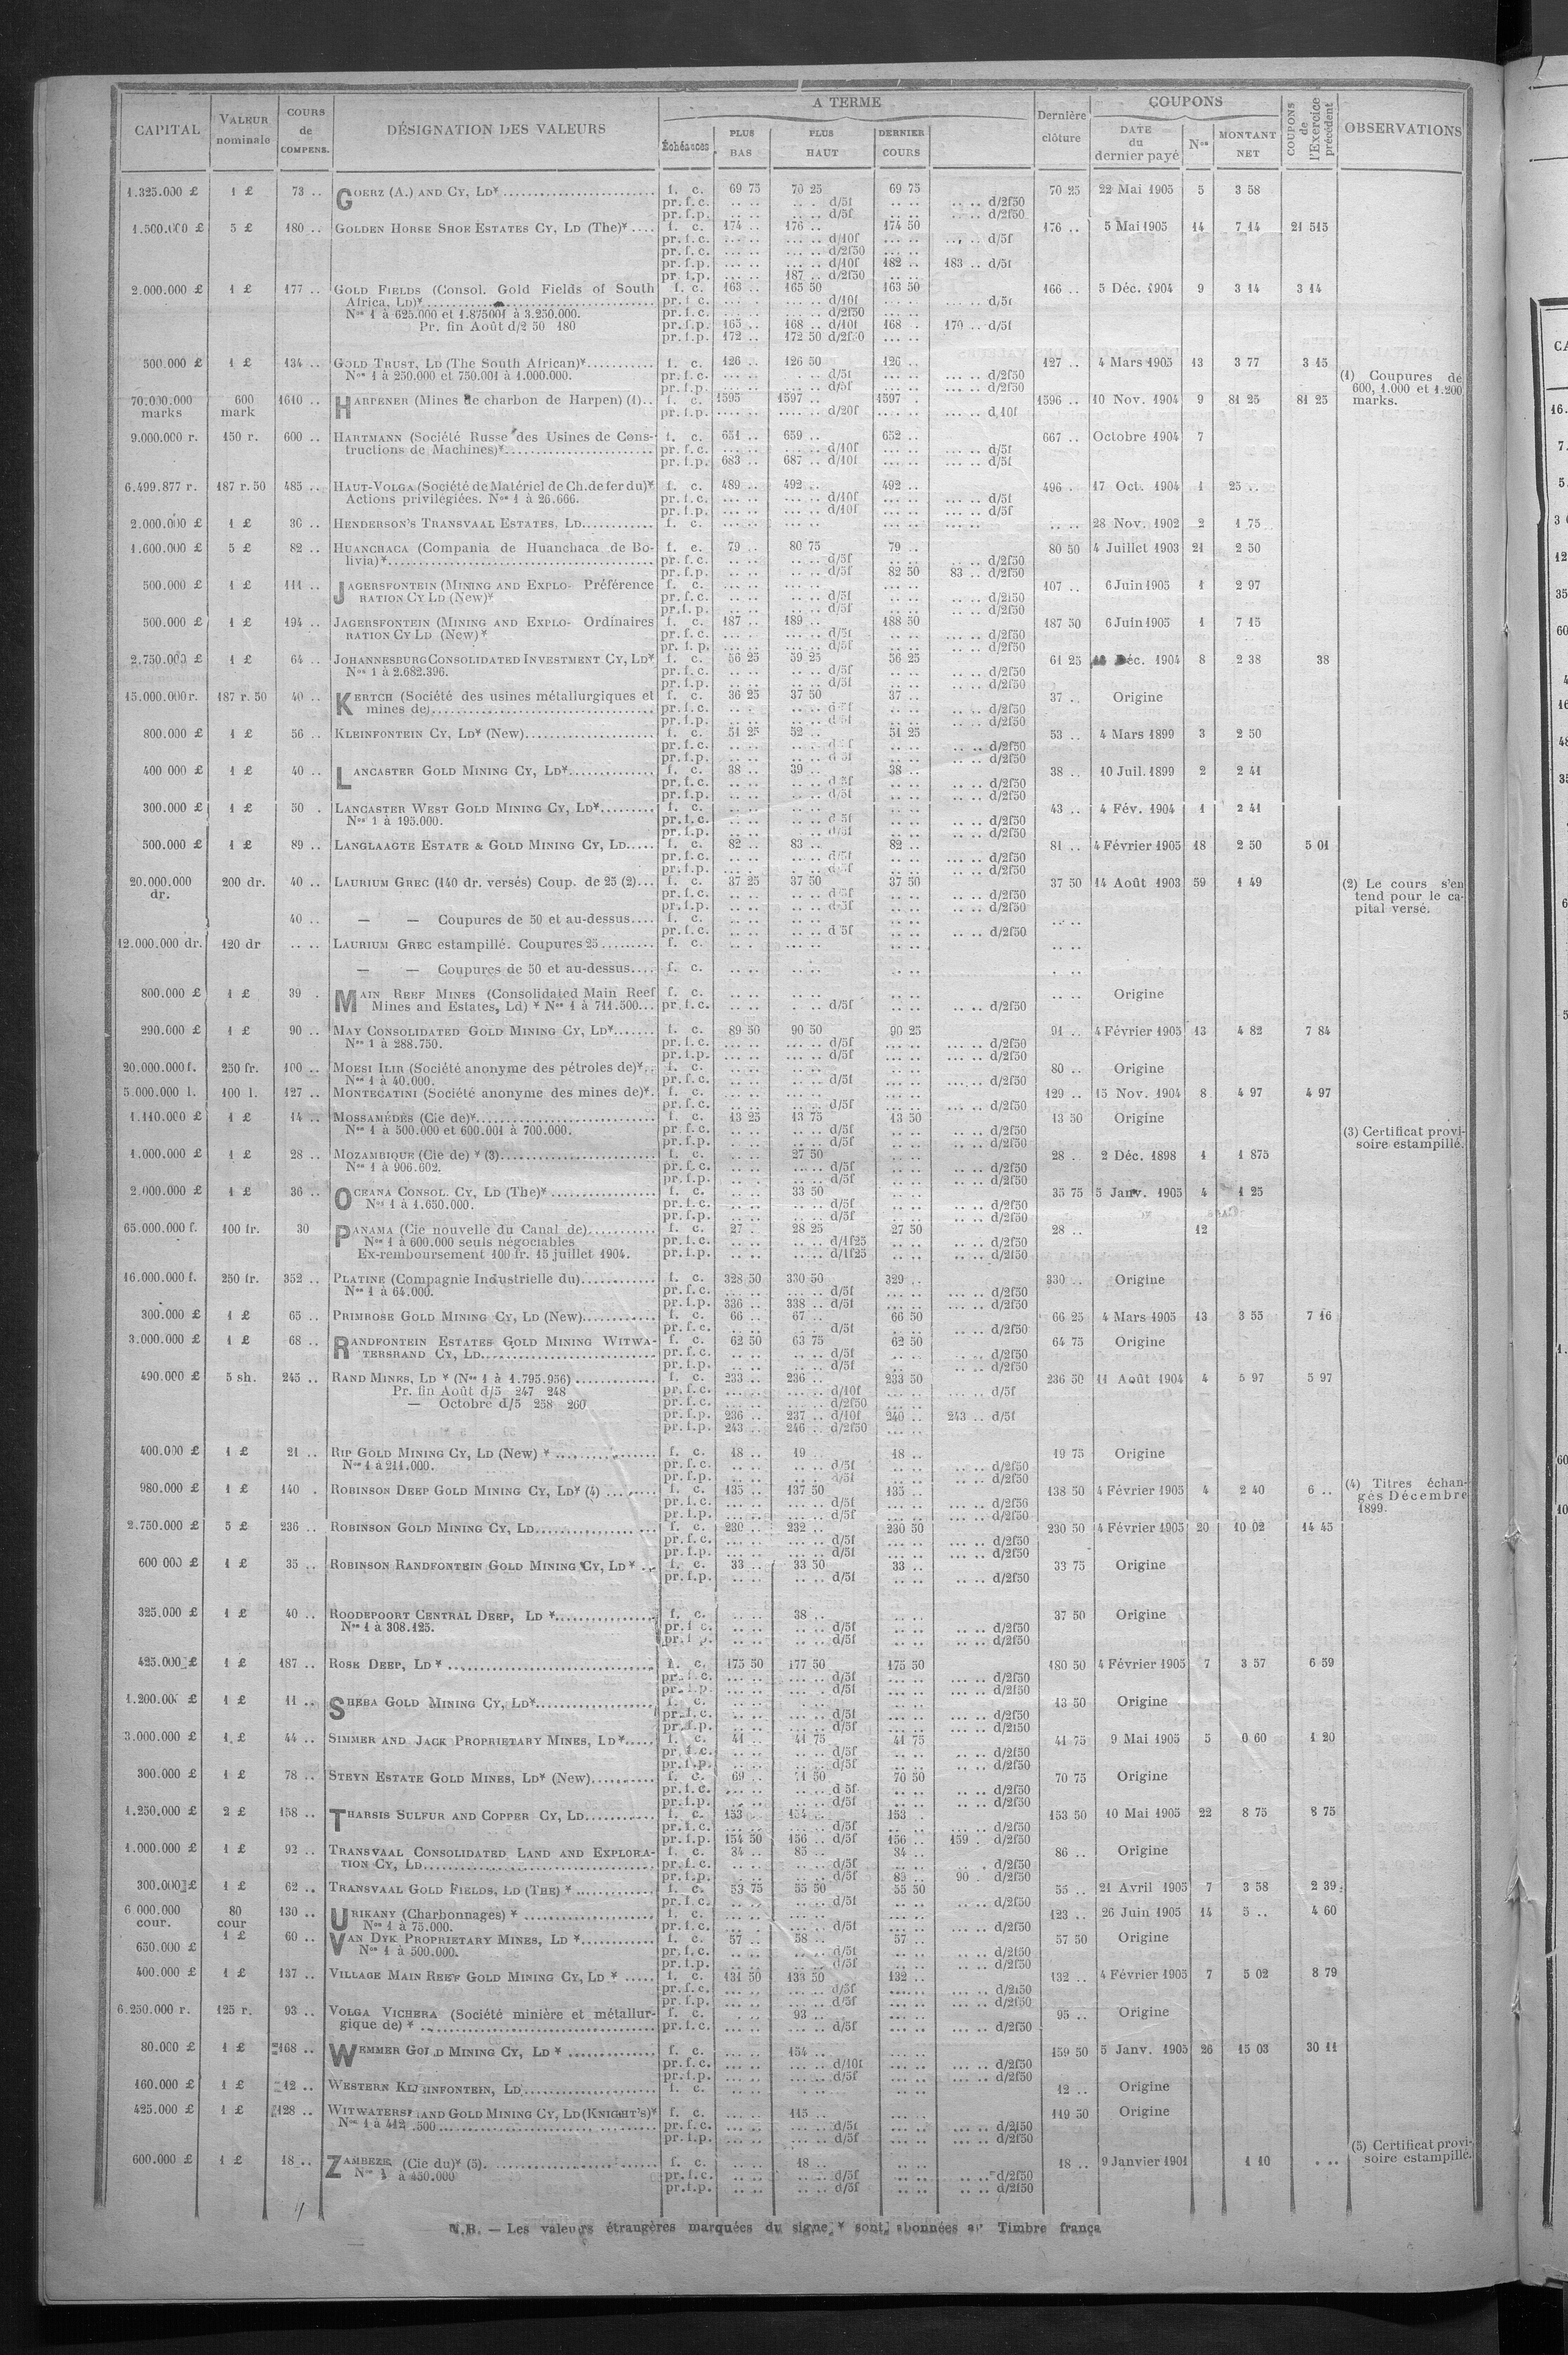 CAPITAL VALEUR nominale COURS de COMPENS. DÉSIGNATION DES VALEURS A TERME Échéances PLUS BAS PLUS HAUT DERNIER COURS Dernière clôture COUPONS DATE du dernier payé Nos MONTANT NET COUPONS de l'Exercice précédent OBSERVATIONS
1.325.000 £ 1 £ 73 .. GOERZ (A.) AND CY, LD* f. c. 69 75 70 25 69 75 70 25 22 Mai 1905 5 3 58
pr. f. c. .. .. .. . d/5f .. .. .. .. d/2f50
pr. f. p. .. .. .. .. d/5f .. .. .. .. d/2f50
1.500.000 £ 5 £ 180 .. GOLDEN HORSE SHOE ESTATES CY, LD (The)* .... f. c. 174 .. 176 .. 174 50 176 .. 5 Mai 1905 14 7 14 21 515
pr. f. c. ... .. ... .. d/10f ... .. ... .. d/5f
pr. f. c. ... .. ... .. d/2f50 ... ..
pr. f. p. ... .. ... .. d/10f 182 .. 183 .. d/5f
pr. f. p. ... .. 187 .. d/2f50 .. ..
2.000.000 £ 1 £ 177 .. GOLD FIELDS (Consol. Gold Fields of South f. c. 163 .. 165 50 163 50 166 .. 5 Déc. 1904 9 3 14 3 14
Africa, LD)* pr. f. c. ... .. ... .. d/10f ... .. d/5f
Nos 1 à 625.000 et 1.875001 à 3.250.000. pr. f. c. ... .. ... .. d/2f50 ... ..
Pr. fin Août d/2 50 180 pr. f. p. 165 .. 168 .. d/10f 168 . 170 .. d/5f
pr. f. p. 172 .. 172 50 d/2f50 ... ..
500.000 £ 1 £ 134 .. GOLD TRUST, LD (The South African)* f. c. 126 .. 126 50 126 .. 127 .. 4 Mars 1905 13 3 77 3 15
Nos 1 à 250.000 et 750.001 à 1.000.000. pr. f. c. ... .. d/5f ... .. d/2f50 (1) Coupures de
pr. f. p. ... .. d/5f ... .. d/2f50 600, 1.000 et 1.200
70.000.000 marks 600 mark 1610 .. HARPENER (Mines de charbon de Harpen) (1).. f. c. 1595 1597 .. 1597 . 1596 .. 10 Nov. 1904 9 81 25 81 25 marks.
pr. f. p. .... .. .... .. d/20f ... .. d 10f
9.000.000 r. 150 r. 600 .. HARTMANN (Société Russe des Usines de Cons- f. c. 651 .. 659 .. 652 .. 667 .. Octobre 1904 7
tructions de Machines)* pr. f. c. ... .. ... .. d/10f ... .. ... .. d/5f
pr. f. p. 683 .. 687 .. d/10f ... .. ... .. d/5f
6.499.877 r. 187 r. 50 485 .. HAUT-VOLGA (Société de Matériel de Ch. de fer du)* f. c. 489 .. 492 .. 492 .. 496 . 17 Oct. 1904 1 25 ..
Actions privilégiées. Nos 1 à 26.666. pr. f. c. ... .. ... .. d/10f ... .. ... .. d/5f
pr. f. p. ... .. ... .. d/10f ... .. ... .. d/5f
2.000.000 £ 1 £ 36 .. HENDERSON'S TRANSVAAL ESTATES, LD f. c. ... .. ... .. ... .. ... .. .. .. 28 Nov. 1902 2 1 75
1.600.000 £ 5 £ 82 .. HUANCHACA (Compania de Huanchaca de Bo- f. c. 79 .. 80 75 79 .. 80 50 4 Juillet 1903 21 2 50
livia)* pr. f. c. .. .. .. .. d/5f .. .. .. .. d/2f50
pr. f. p. .. .. .. .. d/5f 82 50 83 .. d/2f50
500.000 £ 1 £ 111 .. JAGERSFONTEIN (MINING AND EXPLO- Préférence f. c. ... .. ... .. ... .. 107 .. 6 Juin 1905 1 2 97
RATION CY LD (New)* pr. f. c. .. .. .. .. d/5f .. .. .. .. d/2f50
pr. f. p. .. .. .. .. d/5f .. .. .. .. d/2f50
500.000 £ 1 £ 194 .. JAGERSFONTEIN (MINING AND EXPLO- Ordinaires f. c. 187 .. 189 .. 188 50 187 50 6 Juin 1905 1 7 15
RATION CY LD (New)* pr. f. c. ... .. ... .. d/5f .. .. ... .. d/2f50
pr. f. p. ... .. ... .. d/5f .. .. ... .. d/2f50
2.750.000 £ 1 £ 64 .. JOHANNESBURG CONSOLIDATED INVESTMENT CY, LD* f. c. 56 25 59 25 56 25 61 25 Déc. 1904 8 2 38 38
Nos 1 à 2.682.396. pr. f. c. .. .. .. .. d/5f .. .. .. .. d/2f50
pr. f. p. .. .. .. .. d/5f .. .. .. .. d/2f50
15.000.000 r. 187 r. 50 40 .. KERTCH (Société des usines métallurgiques et f. c. 36 25 37 50 37 .. 37 .. Origine
mines de) pr. f. c. .. .. .. .. d/5f .. .. .. .. d/2f50
pr. f. p. .. .. .. .. d/5f .. .. .. .. d/2f50
800.000 £ 1 £ 56 .. KLEINFONTEIN CY, LD* (New) f. c. 51 25 52 .. 51 25 53 .. 4 Mars 1899 3 2 50
pr. f. c. .. .. .. .. d/5f .. .. .. .. d/2f50
pr. f. p. .. .. .. .. d/5f .. .. .. .. d/2f50
400 000 £ 1 £ 40 .. LANCASTER GOLD MINING CY, LD* f. c. 38 .. 39 .. 38 .. 38 .. 10 Juil. 1899 2 2 41
pr. f. c. .. .. .. .. d/5f .. .. .. .. d/2f50
pr. f. p. .. .. .. .. d/5f .. .. .. .. d/2f50
300.000 £ 1 £ 50 . LANCASTER WEST GOLD MINING CY, LD* f. c. .. .. .. .. .. .. 43 .. 4 Fév. 1904 1 2 41
Nos 1 à 195.000. pr. f. c. .. .. .. .. d 5f .. .. .. .. d/2f50
pr. f. p. .. .. .. .. d/5f .. .. .. .. d/2f50
500.000 £ 1 £ 89 .. LANGLAAGTE ESTATE & GOLD MINING CY, LD..... f. c. 82 .. 83 .. 82 .. 81 .. 4 Février 1905 18 2 50 5 01
pr. f. c. .. .. .. .. d/5f .. .. ... .. d/2f50
pr. f. p. .. .. .. .. d/5f .. .. ... .. d/2f50
20.000.000 dr. 200 dr. 40 .. LAURIUM GREC (140 dr. versés) Coup. de 25 (2)... f. c. 37 25 37 50 37 50 37 50 14 Août 1903 59 1 49 (2) Le cours s'en
pr. f. c. .. .. .. .. d/5f .. .. .. .. d/2f50 tend pour le ca-
pr. f. p. .. .. .. .. d/5f .. .. .. .. d/2f50 pital versé.
40 .. — — Coupures de 50 et au-dessus.... f. c. .. .. .. .. .. .. .. ..
pr. f. c. .. .. .. .. d 5f .. .. .. .. d/2f50
12.000.000 dr. 120 dr .. .. LAURIUM GREC estampillé. Coupures 25 f. c. .. . ... .. .. .. .. ..
— — Coupures de 50 et au-dessus.... f. c. .. .. .. .. .. .. . ..
800.000 £ 1 £ 39 . MAIN REEF MINES (Consolidated Main Reef f. c. .. .. .. .. .. .. .. .. Origine
Mines and Estates, Ld) * Nos 1 à 711.500... pr. f. c. .. .. .. .. d/5f .. .. .. .. d/2f50
290.000 £ 1 £ 90 .. MAY CONSOLIDATED GOLD MINING CY, LD* f. c. 89 50 90 50 90 25 91 .. 4 Février 1905 13 4 82 7 84
Nos 1 à 288.750. pr. f. c. ... .. ... .. d/5f ... .. ... .. d/2f50
pr. f. p. ... .. ... .. d/5f ... .. ... .. d/2f50
20.000.000 f. 250 fr. 100 .. MOESI ILIR (Société anonyme des pétroles de)*.. f. c. .. .. .. .. .. .. 80 .. Origine
Nos 1 à 40.000. pr. f. c. ... .. ... .. d/5f ... .. ... .. d/2f50
5.000.000 l. 100 l. 127 .. MONTECATINI (Société anonyme des mines de)*. f. c. .. .. .. .. .. .. 129 .. 15 Nov. 1904 8 4 97 4 97
pr. f. c. .. .. .. .. d/5f ... .. ... .. d/2f50
1.110.000 £ 1 £ 14 .. MOSSAMÉDÈS (Cie de)* f. c. 13 25 13 75 13 50 13 50 Origine
Nos 1 à 500.000 et 600.001 à 700.000. pr. f. c. .. .. .. .. d/5f .. .. .. .. d/2f50 (3) Certificat provi-
pr. f. p. .. .. .. .. d/5f .. .. .. .. d/2f50 soire estampillé.
1.000.000 £ 1 £ 28 .. MOZAMBIQUE (Cie de) * (3) f. c. .. .. 27 50 .. .. 28 .. 2 Déc. 1898 1 1 875
Nos 1 à 906.602. pr. f. c. .. .. .. .. d/5f .. .. .. .. d/2f50
pr. f. p. .. .. .. .. d/5f .. .. .. .. d/2f50
2.000.000 £ 1 £ 36 .. OCEANA CONSOL. CY, LD (The)* f. c. .. .. 33 50 .. .. 35 75 5 Janv. 1905 4 1 25
Nos 1 à 1.650.000. pr. f. c. .. .. .. .. d/5f .. .. .. .. d/2f50
pr. f. p. .. .. .. .. d/5f .. .. .. .. d/2f50
65.000.000 f. 100 fr. 30 PANAMA (Cie nouvelle du Canal de) f. c. 27 .. 28 25 27 50 28 .. 12
Nos 1 à 600.000 seuls négociables pr. f. c. .. .. .. .. d/1f25 .. .. .. .. d/2f50
Ex-remboursement 100 fr. 15 juillet 1904. pr. f. p. .. .. .. .. d/1f25 .. .. .. .. d/2f50
16.000.000 f. 250 fr. 352 .. PLATINE (Compagnie Industrielle du) f. c. 328 50 330 50 329 .. 330 .. Origine
Nos 1 à 64.000. pr. f. c. ... .. ... .. d/5f ... .. ... .. d/2f50
pr. f. p. 336 .. 338 .. d/5f ... .. ... .. d/2f50
300.000 £ 1 £ 65 .. PRIMROSE GOLD MINING CY, LD (New) f. c. 66 .. 67 .. 66 50 66 25 4 Mars 1905 13 3 55 7 16
pr. f. c. .. .. .. . d/5f .. .. .. .. d/2f50
3.000.000 £ 1 £ 68 .. RANDFONTEIN ESTATES GOLD MINING WITWA- f. c. 62 50 63 75 62 50 64 75 Origine
TERSRAND CY, LD pr. f. c. .. .. .. .. d/5f .. .. .. .. d/2f50
pr. f. p. .. .. .. .. d/5f .. .. .. .. d/2f50
490.000 £ 5 sh. 245 .. RAND MINES, LD * (Nos 1 à 1.795.956) f. c. 233 .. 236 .. 233 50 236 50 11 Août 1904 4 5 97 5 97
Pr. fin Août d/5 247 248 pr. f. c. ... .. ... .. d/10f ... .. ... .. d/5f
— Octobre d/5 258 260 pr. f. c. ... .. ... .. d/2f50 ... ..
pr. f. p. 236 .. 237 .. d/10f 240 .. 243 .. d/5f
pr. f. p. 243 .. 246 .. d/2f50 ... ..
400.000 £ 1 £ 21 .. RIP GOLD MINING CY, LD (New) * f. c. 18 .. 19 .. 18 .. 19 75 Origine
Nos 1 à 211.000. pr. f. c. .. .. .. .. d/5f .. .. .. .. d/2f50
pr. f. p. .. .. .. . d/5f .. .. .. .. d/2f50
980.000 £ 1 £ 140 . ROBINSON DEEP GOLD MINING CY, LD* (4) f. c. 135 .. 137 50 135 .. 138 50 4 Février 1905 4 2 40 6 .. (4) Titres échan-
pr. f. c. ... .. ... .. d/5f ... .. ... .. d/2f56 gés Décembre
pr. f. p. ... .. ... .. d/5f ... .. ... .. d/2f50 1899.
2.750.000 £ 5 £ 236 .. ROBINSON GOLD MINING CY, LD f. c. 230 .. 232 .. 230 50 230 50 4 Février 1905 20 10 02 14 45
pr. f. c. ... .. ... .. d/5f ... .. ... .. d/2f50
pr. f. p. ... .. ... .. d/5f ... .. ... .. d/2f50
600 000 £ 1 £ 35 .. ROBINSON RANDFONTEIN GOLD MINING CY, LD* .. f. c. 33 .. 33 50 33 .. 33 75 Origine
pr. f. p. .. .. .. .. d/5f .. .. .. .. d/2f50
325.000 £ 1 £ 40 .. ROODEPOORT CENTRAL DEEP, LD * f. c. .. .. 38 .. .. .. 37 50 Origine
Nos 1 à 308.125. pr. f. c. .. .. .. .. d/5f .. .. .. .. d/2f50
pr. f. p. .. .. .. .. d/5f .. .. .. .. d/2f50
425.000 £ 1 £ 187 .. ROSE DEEP, LD * f. c. 175 50 177 50 175 50 180 50 4 Février 1905 7 3 57 6 59
pr. f. c. ... .. ... .. d/5f ... .. ... .. d/2f50
pr. f. p. ... .. ... . d/5f ... .. ... .. d/2f50
1.200.00 £ 1 £ 11 .. SHEBA GOLD MINING CY, LD* f. c. .. .. .. .. .. .. 13 50 Origine
pr. f. c. .. .. .. .. d/5f .. .. .. .. d/2f50
pr. f. p. .. .. .. .. d/5f .. .. .. .. d/2f50
3.000.000 £ 1 £ 44 .. SIMMER AND JACK PROPRIETARY MINES, LD* f. c. 41 .. 41 75 41 75 41 75 9 Mai 1905 5 0 60 1 20
pr. f. c. .. .. .. .. d/5f .. .. .. .. d/2f50
pr. f. p. .. .. .. .. d/5f .. .. .. .. d/2f50
300.000 £ 1 £ 78 .. STEYN ESTATE GOLD MINES, LD* (New) f. c. 69 .. 71 50 70 50 70 75 Origine
pr. f. c. ... .. .. .. d 5f .. .. .. .. d/2f50
pr. f. p. .. .. .. .. d/5f .. .. .. .. d/2f50
1.250.000 £ 2 £ 158 .. THARSIS SULFUR AND COPPER CY, LD f. c. 153 .. 154 .. 153 . 153 50 10 Mai 1905 22 8 75 8 75
pr. f. c. ... .. ... .. d/5f .. .. ... .. d/2f50
pr. f. p. 154 50 156 .. d/5f 156 .. 159 . d/2f50
1.000.000 £ 1 £ 92 .. TRANSVAAL CONSOLIDATED LAND AND EXPLORA- f. c. 84 .. 85 .. 84 .. 86 .. Origine
TION CY, LD pr. f. c. .. .. .. .. d/5f .. .. . d/2f50
pr. f. p. .. .. .. .. d/5f 89 .. 90 . d/2f50
300.000 £ 1 £ 62 .. TRANSVAAL GOLD FIELDS, LD (THE) * f. c. 53 75 55 50 55 50 55 .. 21 Avril 1905 7 3 58 2 39
pr. f. c. .. .. .. .. d/5f .. .. .. .. d/2f50
6 000.000 cour. 80 cour 130 .. URIKANY (Charbonnages) * f. c. ... .. ... .. ... .. 123 .. 26 Juin 1905 14 5 .. 4 60
Nos 1 à 75.000. pr. f. c. ... . ... .. d/5f ... .. ... .. d/2f50
650.000 £ 1 £ 60 .. VAN DYK PROPRIETARY MINES, LD * f. c. 57 .. 58 .. 57 .. 57 50 Origine
Nos 1 à 500.000. pr. f. c. .. .. .. .. d/5f .. .. .. .. d/2f50
pr. f. p. .. .. .. .. d/5f .. .. .. .. d/2f50
400.000 £ 1 £ 137 .. VILLAGE MAIN REEF GOLD MINING CY, LD * ..... f. c. 131 50 133 50 132 .. 132 .. 4 Février 1905 7 5 02 8 79
pr. f. c. ... .. ... .. d/5f ... .. ... .. d/2f50
pr. f. p. ... .. ... .. d/5f ... .. ... .. d/2f50
6.250.000 r. 125 r. 93 .. VOLGA VICHERA (Société minière et métallur- f. c. . .. 93 .. ... .. 95 .. Origine
gique de) * pr. f. c. ... .. ... .. d/5f ... .. ... .. d/2f50
80.000 £ 1 £ 168 .. WEMMER GOLD MINING CY, LD * f. c. ... .. 154 .. ... .. 159 50 5 Janv. 1905 26 15 03 30 11
pr. f. c. ... .. ... .. d/10f ... .. ... .. d/2f50
pr. f. p. ... .. ... .. d/5f ... .. ... .. d/2f50
160.000 £ 1 £ 12 .. WESTERN KLEINFONTEIN, LD f. c. .. .. .. .. .. .. 12 .. Origine
425.000 £ 1 £ 128 .. WITWATERSRAND GOLD MINING CY, LD (KNIGHT'S)* f. c. ... .. 115 .. ... .. 119 50 Origine
Nos 1 à 412.500 pr. f. c. ... .. ... .. d/5f ... .. ... .. d/2f50
pr. f. p. ... .. ... .. d/5f ... .. ... .. d/2f50
600.000 £ 1 £ 18 .. ZAMBEZE (Cie du)* (5) f. c. .. .. 18 .. .. .. 18 .. 9 Janvier 1901 1 10 . .. (5) Certificat provi-
Nos 1 à 450.000 pr. f. c. .. .. .. .. d/5f .. .. .. .. d/2f50 soire estampillé.
pr. f. p. .. .. .. .. d/5f .. .. .. .. d/2f50
N.B. — Les valeurs étrangères marquées du signe * sont abonnées au Timbre frança